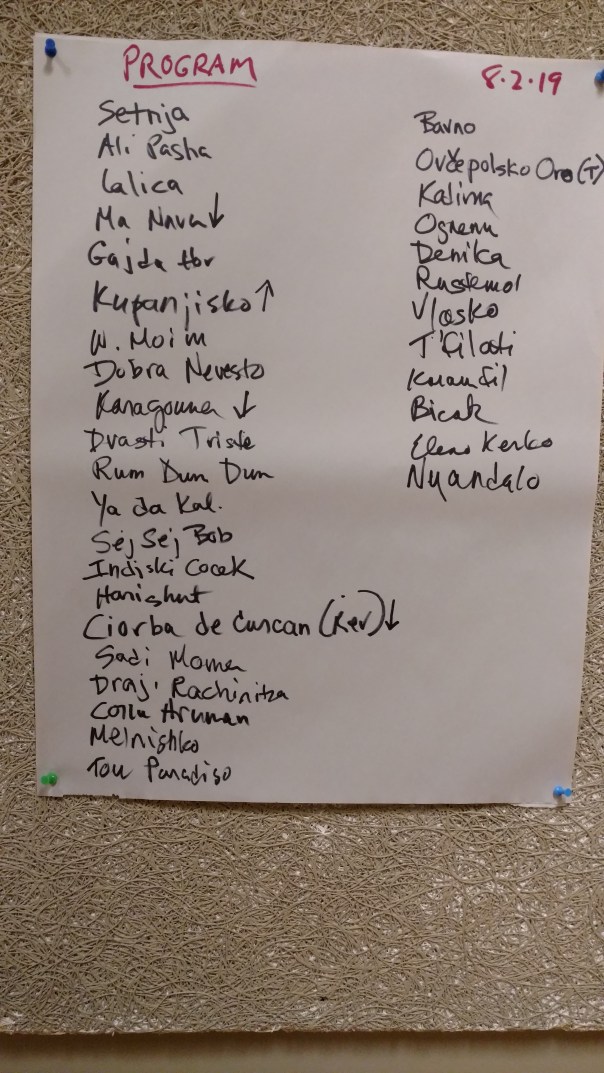 PROGRAM
8.2.19
Setnja
Ali Pasha
Lalica
Ma Navu ↓
Gajda
Kupanjisko ↑
W. Moim
Dobra Nevesto
Karagouna ↓
Dvasti Triste
Rum Dum Dum
Ya da Kal.
Sej Sej Bob
Indjiski Cocek
Hanishut
Ciorba de Curcan (Rev) ↓
Sadi Moma
Draj. Rachinitza
Aruman
Melnishko
Tou Paradiso
Bavno
Ovčepolsko Oro (T)
Kalina
Ognenu
Denika
Rustemul
Vlasko
T'filati
Bicak
Eleno Kerko
Nyandalo